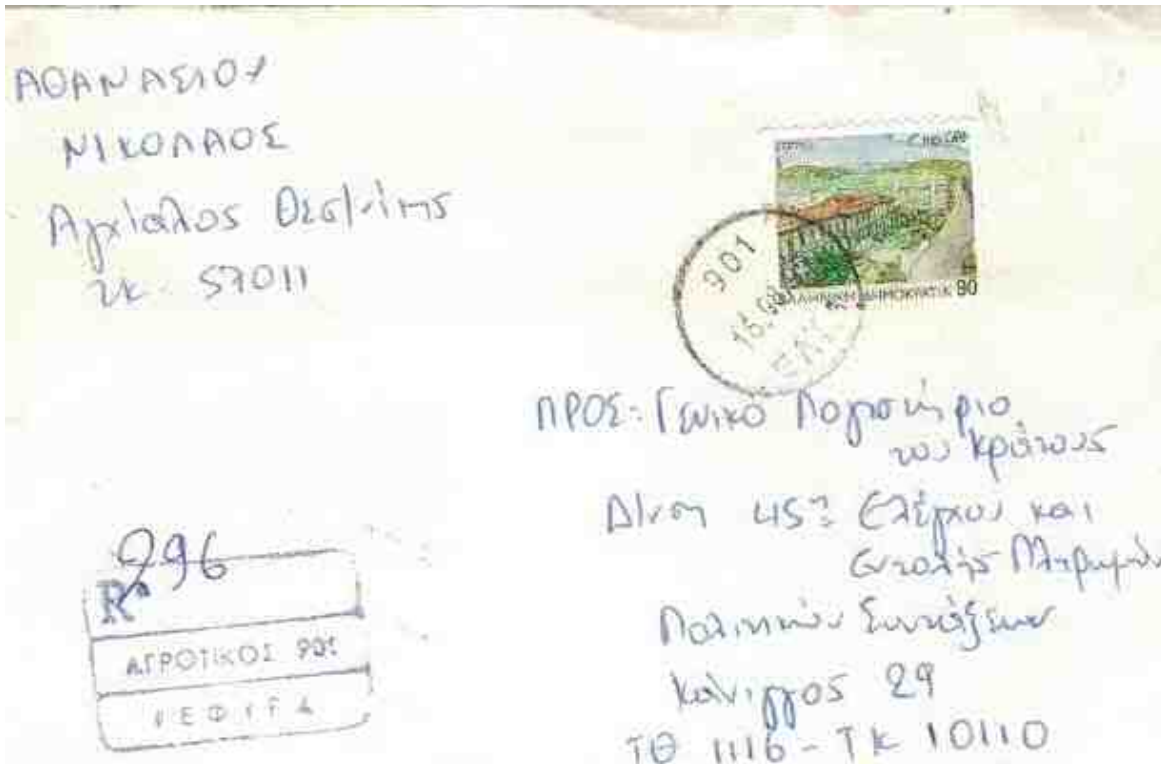 ΑΘΑΝΑΣΙΟΥ
ΝΙΚΟΛΑΟΣ
Αγχίαλος Θεσ/νίκης
ΤΚ. 57011
ΕΛΛΗΝΙΚΗ ΔΗΜΟΚΡΑΤΙΑ 80
901
ΠΡΟΣ: Γενικό Λογιστήριο
του Κράτους
Δ/νση 45η Ελέγχου και
Εντολής Πληρωμών
Πολιτικών Συντάξεων
Κάνιγγος 29
ΤΘ 1116 - ΤΚ 10110
296
R
ΑΓΡΟΤΙΚΟΣ 901